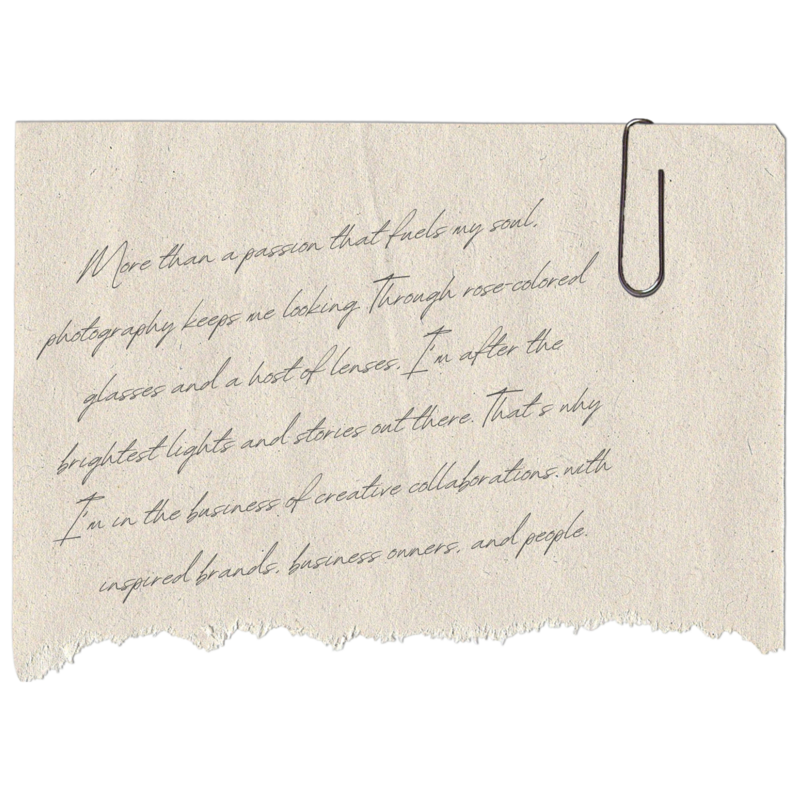 More than a passion that fuels my soul,
photography keeps me looking Through rose-colored
glasses and a host of lenses. I'm after the
brightest lights and stories out there. That's why
I'm in the business of creative collaborations with
inspired brands, business owners, and people.